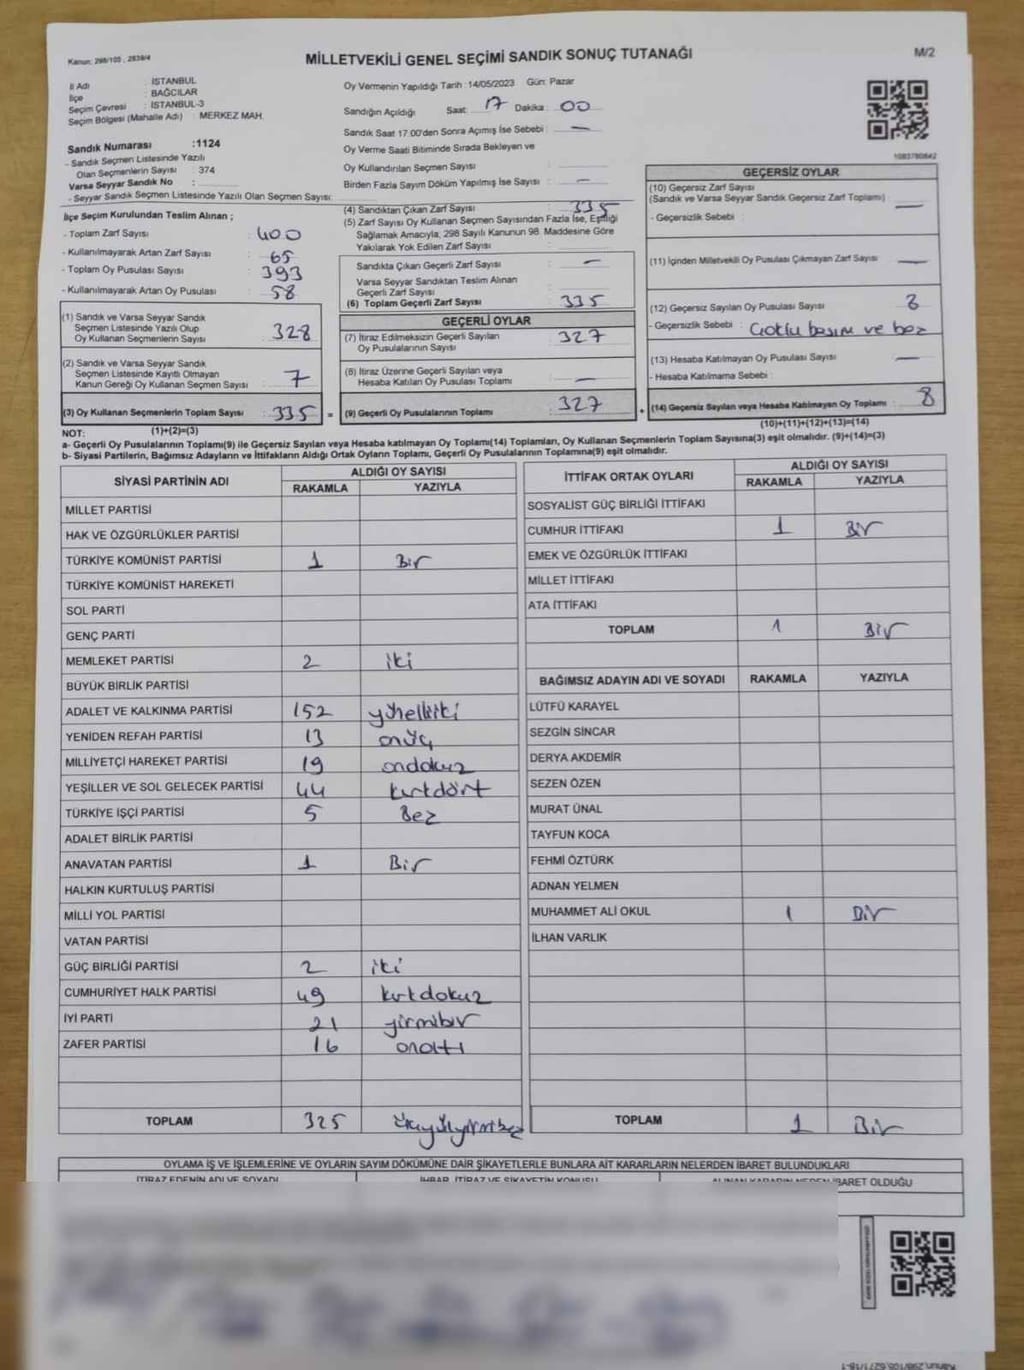 Kanun: 298/105 , 2839/4
MİLLETVEKİLİ GENEL SEÇİMİ SANDIK SONUÇ TUTANAĞI
M/2
İl Adı : İSTANBUL
İlçe : BAĞCILAR
Seçim Çevresi : İSTANBUL-3
Seçim Bölgesi (Mahalle Adı) : MERKEZ MAH.
Oy Vermenin Yapıldığı Tarih :14/05/2023 Gün: Pazar
Sandığın Açıldığı Saat: 17 Dakika : 00
Sandık Saat 17.00'den Sonra Açımış İse Sebebi : —
Oy Verme Saati Bitiminde Sırada Bekleyen ve
Oy Kullandırılan Seçmen Sayısı
Birden Fazla Sayım Döküm Yapılmış İse Sayısı : —
Sandık Numarası :1124
- Sandık Seçmen Listesinde Yazılı
Olan Seçmenlerin Sayısı : 374
Varsa Seyyar Sandık No :
- Seyyar Sandık Seçmen Listesinde Yazılı Olan Seçmen Sayısı:
İlçe Seçim Kurulundan Teslim Alınan ;
- Toplam Zarf Sayısı : 400
- Kullanılmayarak Artan Zarf Sayısı : 65
- Toplam Oy Pusulası Sayısı : 393
- Kullanılmayarak Artan Oy Pusulası : 58
(1) Sandık ve Varsa Seyyar Sandık
Seçmen Listesinde Yazılı Olup
Oy Kullanan Seçmenlerin Sayısı : 328
(2) Sandık ve Varsa Seyyar Sandık
Seçmen Listesinde Kayıtlı Olmayan
Kanun Gereği Oy Kullanan Seçmen Sayısı : 7
(3) Oy Kullanan Seçmenlerin Toplam Sayısı : 335 =
(1)+(2)=(3)
(4) Sandıktan Çıkan Zarf Sayısı : 335
(5) Zarf Sayısı Oy Kullanan Seçmen Sayısından Fazla İse, Eşitliği
Sağlamak Amacıyla, 298 Sayılı Kanunun 98. Maddesine Göre
Yakılarak Yok Edilen Zarf Sayısı :
Sandıkta Çıkan Geçerli Zarf Sayısı : —
Varsa Seyyar Sandıktan Teslim Alınan
Geçerli Zarf Sayısı
(6) Toplam Geçerli Zarf Sayısı : 335
GEÇERLİ OYLAR
(7) İtiraz Edilmeksizin Geçerli Sayılan
Oy Pusulalarının Sayısı : 327
(8) İtiraz Üzerine Geçerli Sayılan veya
Hesaba Katılan Oy Pusulası Toplamı : —
(9) Geçerli Oy Pusulalarının Toplamı : 327 +
1083780842
GEÇERSİZ OYLAR
(10) Geçersiz Zarf Sayısı
(Sandık ve Varsa Seyyar Sandık Geçersiz Zarf Toplamı) : —
- Geçersizlik Sebebi :
(11) İçinden Milletvekili Oy Pusulası Çıkmayan Zarf Sayısı : —
(12) Geçersiz Sayılan Oy Pusulası Sayısı : 8
- Geçersizlik Sebebi : Çoklu basım ve boz
(13) Hesaba Katılmayan Oy Pusulası Sayısı : —
- Hesaba Katılmama Sebebi :
(14) Geçersiz Sayılan veya Hesaba Katılmayan Oy Toplamı : 8
(10)+(11)+(12)+(13)=(14)
NOT:
a- Geçerli Oy Pusulalarının Toplamı(9) ile Geçersiz Sayılan veya Hesaba katılmayan Oy Toplamı(14) Toplamları, Oy Kullanan Seçmenlerin Toplam Sayısına(3) eşit olmalıdır. (9)+(14)=(3)
b- Siyasi Partilerin, Bağımsız Adayların ve İttifakların Aldığı Ortak Oyların Toplamı, Geçerli Oy Pusulalarının Toplamına(9) eşit olmalıdır.
SİYASİ PARTİNİN ADI
ALDIĞI OY SAYISI
RAKAMLA YAZIYLA
MİLLET PARTİSİ
HAK VE ÖZGÜRLÜKLER PARTİSİ
TÜRKİYE KOMÜNİST PARTİSİ 1 Bir
TÜRKİYE KOMÜNİST HAREKETİ
SOL PARTİ
GENÇ PARTİ
MEMLEKET PARTİSİ 2 iki
BÜYÜK BİRLİK PARTİSİ
ADALET VE KALKINMA PARTİSİ 152 yüzelliiki
YENİDEN REFAH PARTİSİ 13 onüç
MİLLİYETÇİ HAREKET PARTİSİ 19 ondokuz
YEŞİLLER VE SOL GELECEK PARTİSİ 44 kırkdört
TÜRKİYE İŞÇİ PARTİSİ 5 Beş
ADALET BİRLİK PARTİSİ
ANAVATAN PARTİSİ 1 Bir
HALKIN KURTULUŞ PARTİSİ
MİLLİ YOL PARTİSİ
VATAN PARTİSİ
GÜÇ BİRLİĞİ PARTİSİ 2 iki
CUMHURİYET HALK PARTİSİ 49 kırkdokuz
İYİ PARTİ 21 yirmibir
ZAFER PARTİSİ 16 onaltı
TOPLAM 325 üçyüzyirmibeş
İTTİFAK ORTAK OYLARI
ALDIĞI OY SAYISI
RAKAMLA YAZIYLA
SOSYALİST GÜÇ BİRLİĞİ İTTİFAKI
CUMHUR İTTİFAKI 1 Bir
EMEK VE ÖZGÜRLÜK İTTİFAKI
MİLLET İTTİFAKI
ATA İTTİFAKI
TOPLAM 1 Bir
BAĞIMSIZ ADAYIN ADI VE SOYADI RAKAMLA YAZIYLA
LÜTFÜ KARAYEL
SEZGİN SİNCAR
DERYA AKDEMİR
SEZEN ÖZEN
MURAT ÜNAL
TAYFUN KOCA
FEHMİ ÖZTÜRK
ADNAN YELMEN
MUHAMMET ALİ OKUL 1 Bir
İLHAN VARLIK
TOPLAM 1 Bir
OYLAMA İŞ VE İŞLEMLERİNE VE OYLARIN SAYIM DÖKÜMÜNE DAİR ŞİKAYETLERLE BUNLARA AİT KARARLARIN NELERDEN İBARET BULUNDUKLARI
İTİRAZ EDENİN ADI VE SOYADI İHBAR, İTİRAZ VE ŞİKAYETİN KONUSU ALINAN KARARIN NEDEN İBARET OLDUĞU